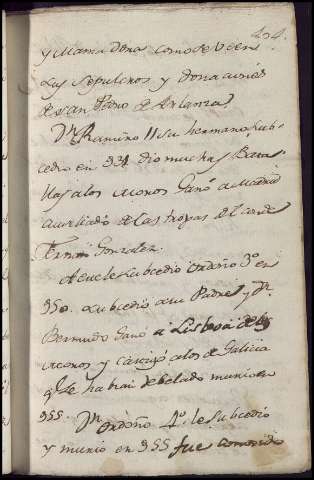 404.
y Mamadona como se ve en
Las Sepulcros y donaciones
de san Pedro de Arlanza.
Dn Ramiro II su hermano sub-
cedio en 931 dio muchas Bata
llas alos moros Gano a Madrid
auxiliado de las tropas del conde
Fernan Gonzalez.
Aeste le subcedio ordoño 3º en
950. subcedio a su Padre y Dn.
Bermudo Gano a Lisboa de los
moros y castigo alos de Galicia
qe se habian rebelado murio en
955. Dn ordoño 4º. le subcedio
y murio en 955 fue conocido